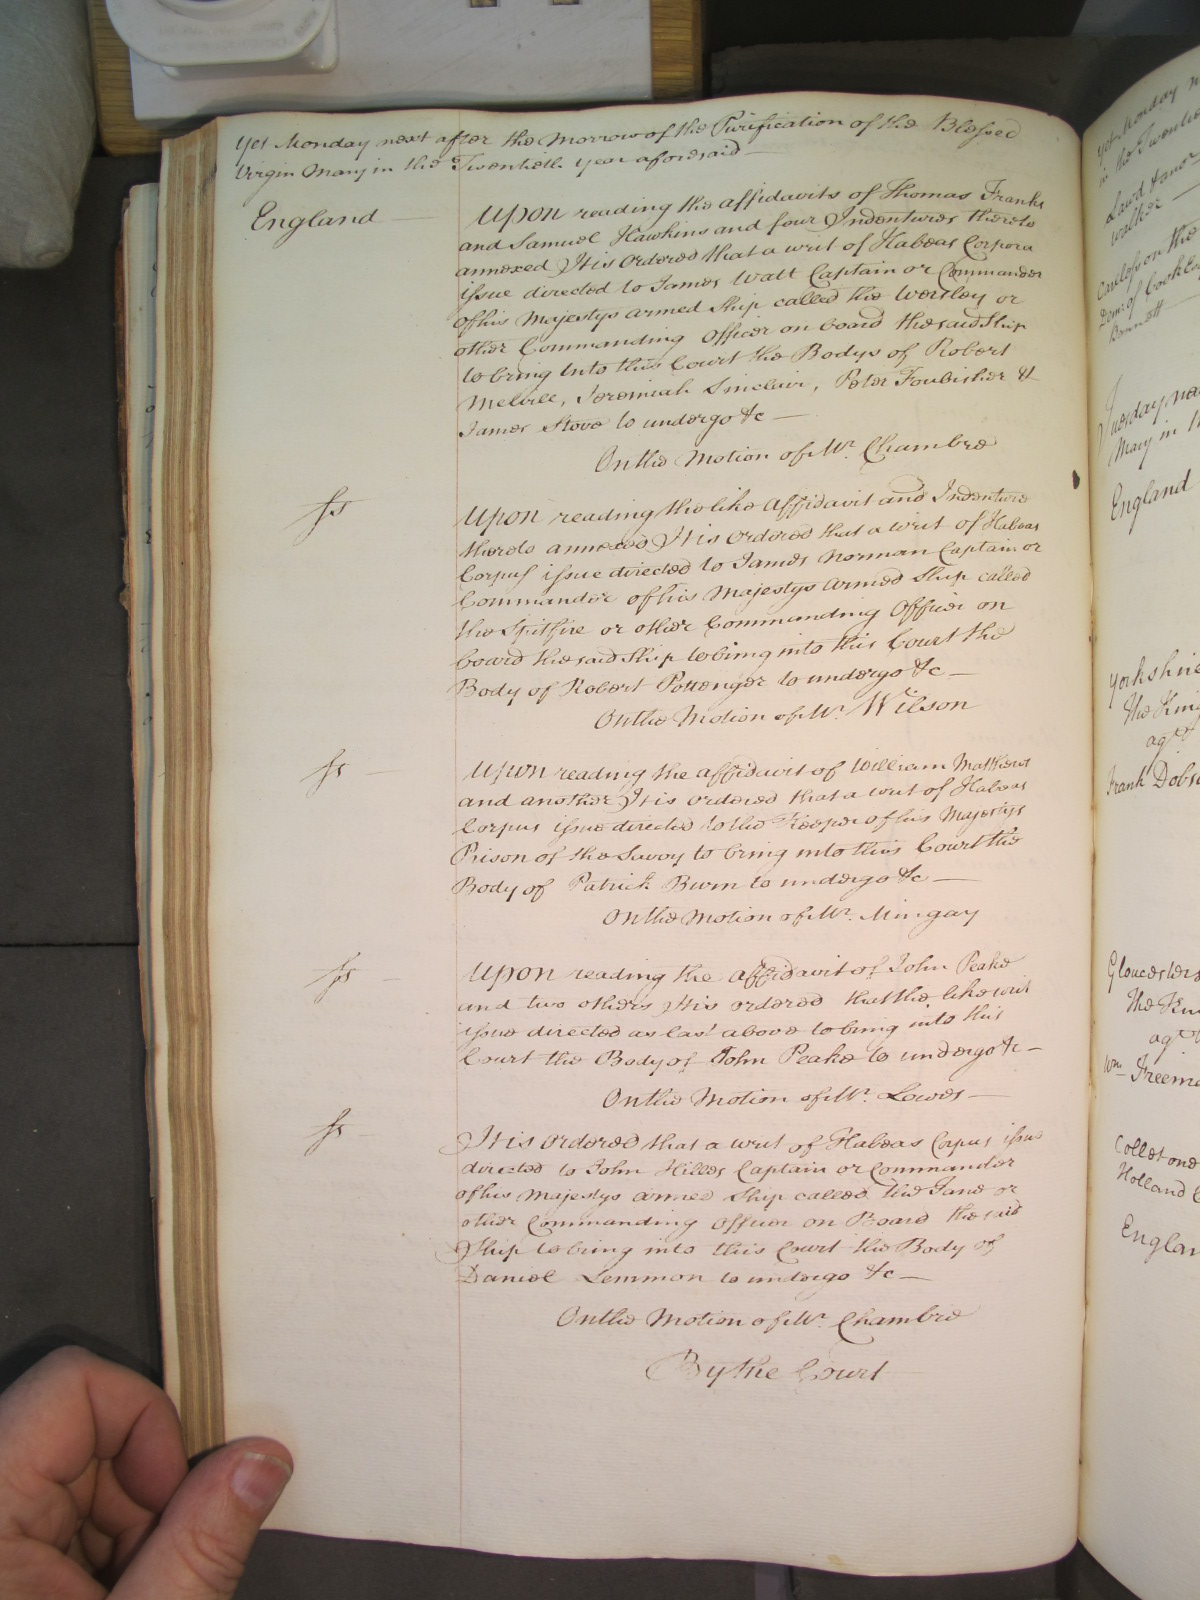 Yet Monday next after the Morrow of the Purification of the Blessed
Virgin Mary in the Twentieth year aforesaid
England
Upon reading the affidavits of Thomas Franks
and Samuel Hawkins and four Indentures thereto
annexed It is ordered that a writ of Habeas Corpora
issue directed to James Watt Captain or Commander
of his Majestys armed Ship called the Worsley or
other Commanding Officer on board the said Ship
to bring into this Court the Bodys of Robert
Melvill, Jeremiah Sinclair, Peter Foubisher &
James Stove to undergo &c
On the Motion of Mr. Chambre
ss
Upon reading the like affidavit and Indenture
thereto annexed It is ordered that a writ of Habeas
Corpus issue directed to James Norman Captain or
Commander of his Majestys armed Ship called
the Spitfire or other Commanding Officer on
board the said Ship to bring into this Court the
Body of Robert Pottenger to undergo &c
On the Motion of Mr. Wilson
ss
Upon reading the affidavit of William Matthews
and another It is ordered that a writ of Habeas
Corpus issue directed to the Keeper of his Majestys
Prison of the Savoy to bring into this Court the
Body of Patrick Burn to undergo &c
On the Motion of Mr. Mingay
ss
Upon reading the affidavit of John Peake
and two others It is ordered that the like writ
issue directed as last above to bring into this
Court the Body of John Peake to undergo &c
On the Motion of Mr. Lowes
ss
It is ordered that a writ of Habeas Corpus issue
directed to John Hilles Captain or Commander
of his Majestys armed Ship called the Jane or
other Commanding Officer on Board the said
Ship to bring into this Court the Body of
Daniel Lemmon to undergo &c
On the Motion of Mr. Chambre
By the Court
yet Monday
in the Twentie
walker
Tuesday
Mary in
England
Yorkshire
The King
agt
Frank Dobs
Gloucesters
The Kin
agt
Wm Freem
Holland
Englan